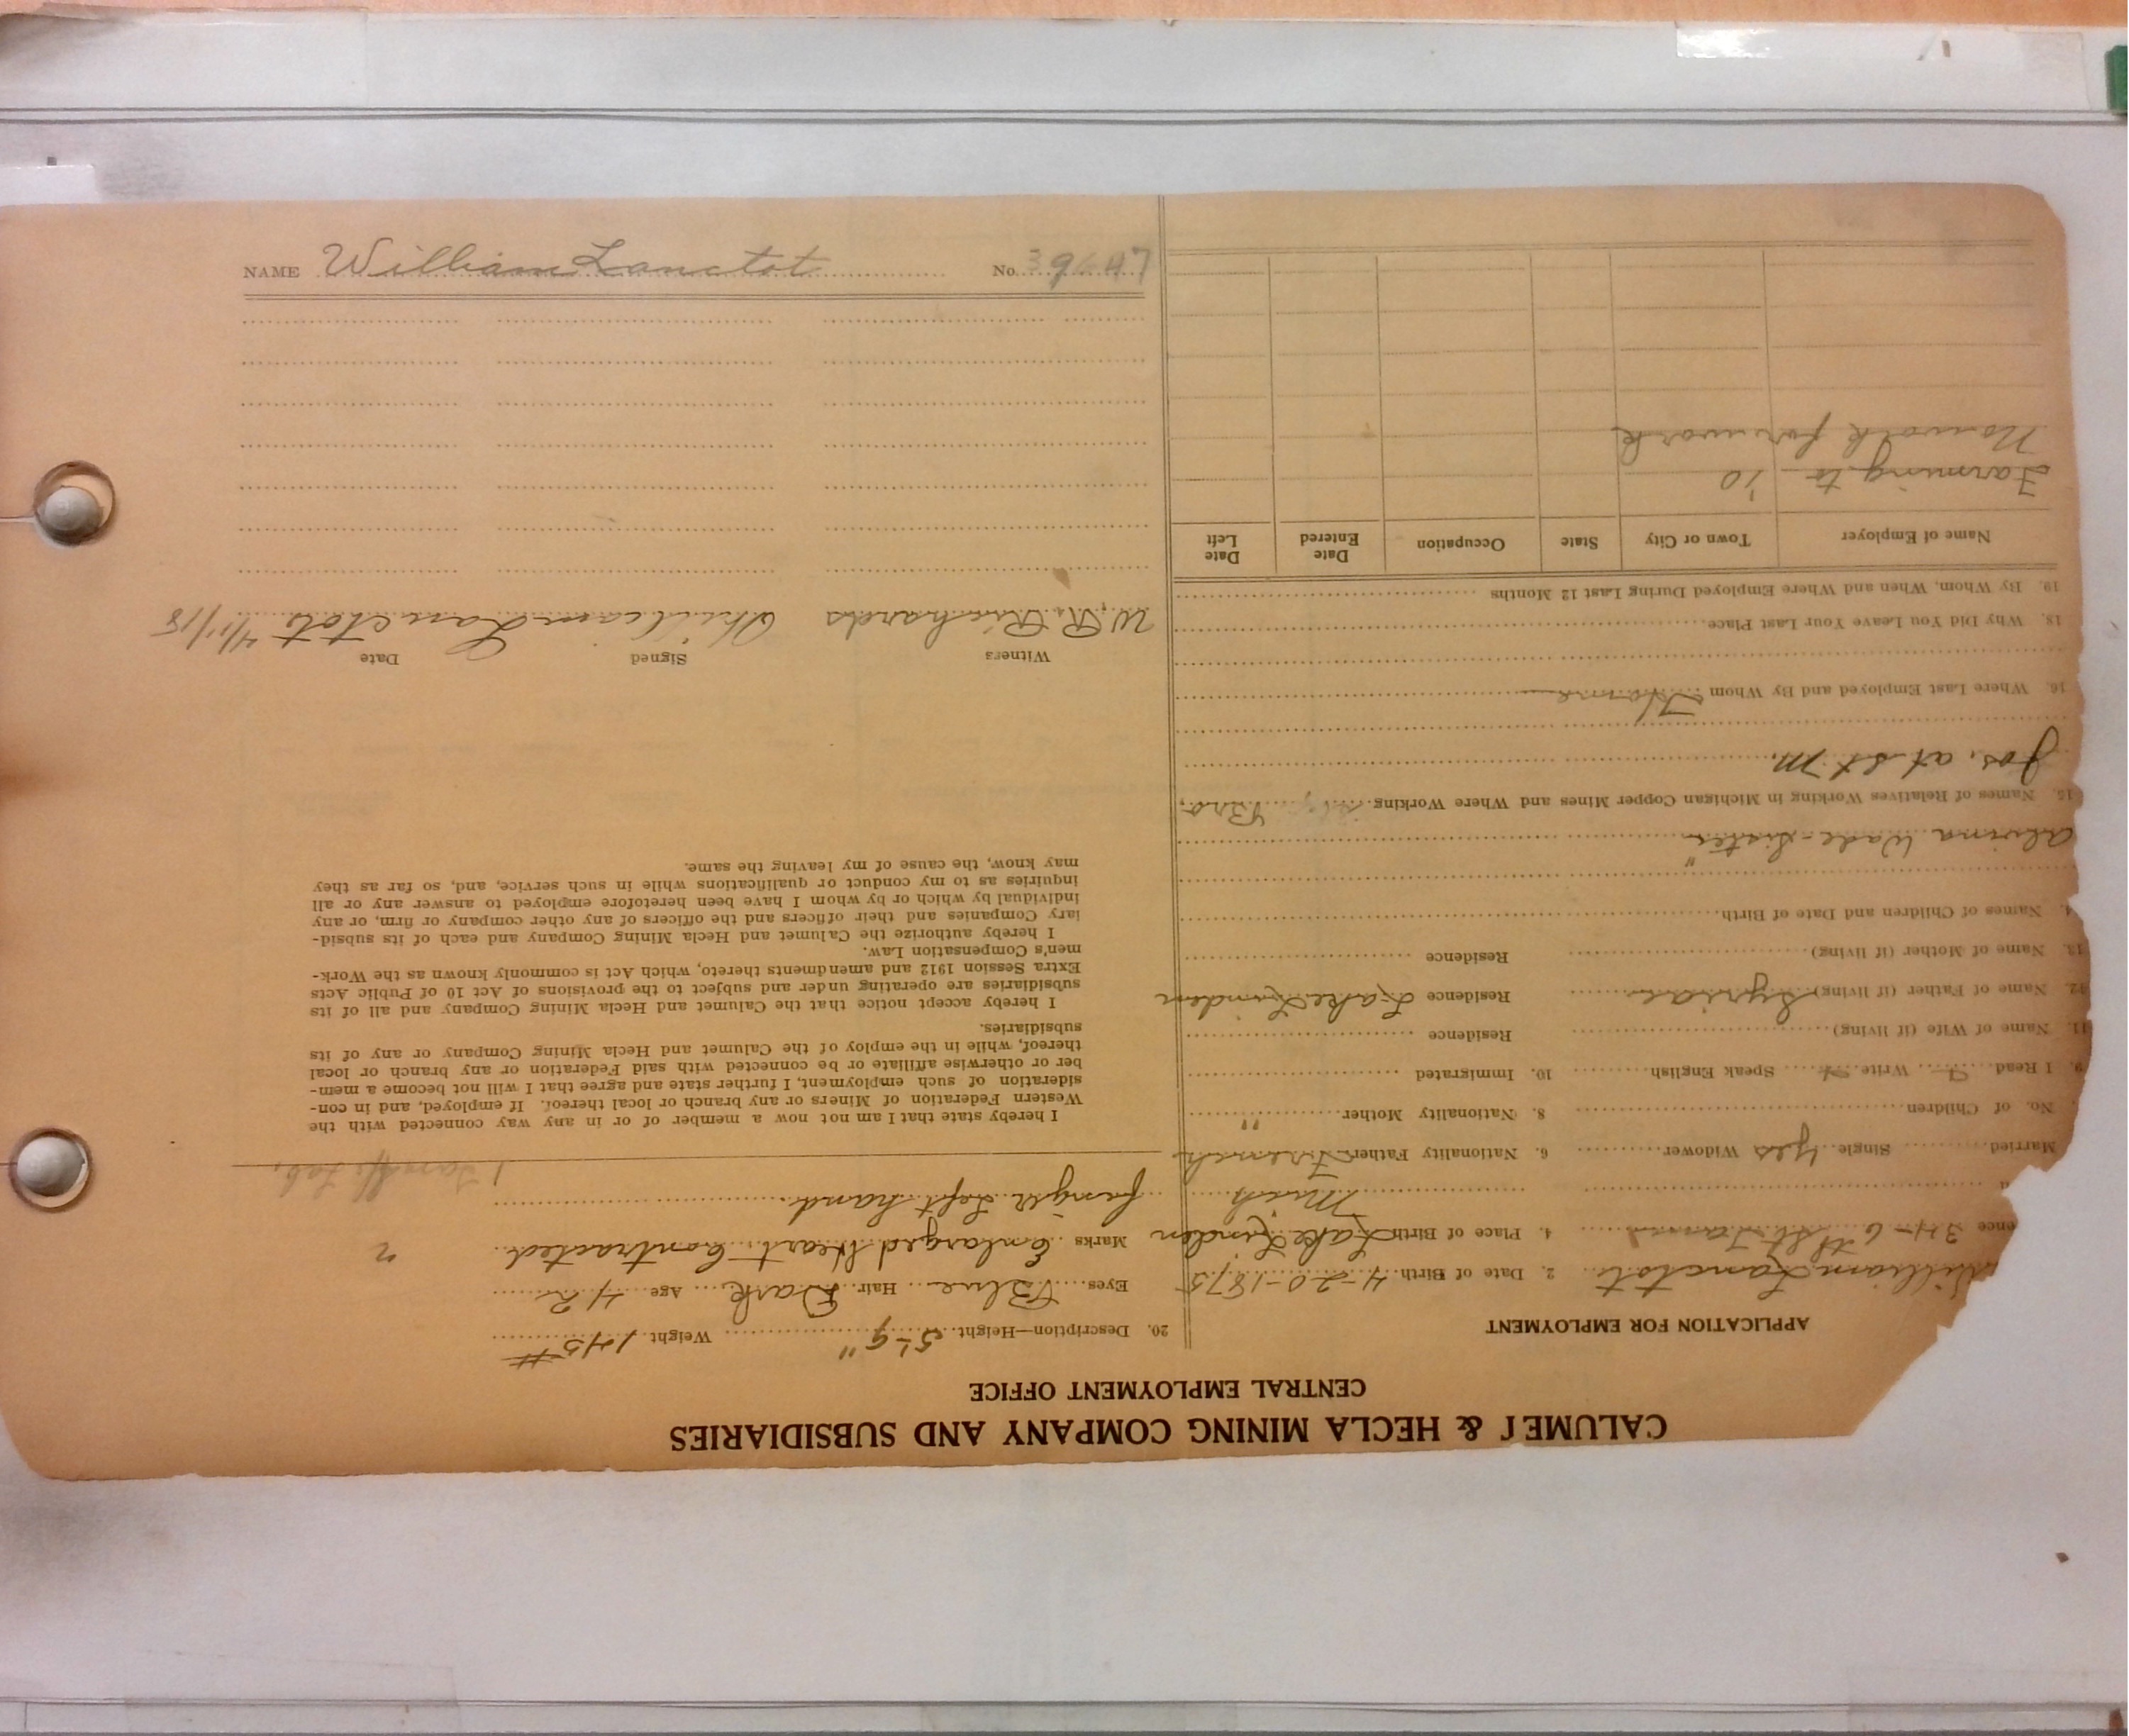 CALUMET & HECLA MINING COMPANY AND SUBSIDIARIES
CENTRAL EMPLOYMENT OFFICE
APPLICATION FOR EMPLOYMENT
William Lanctot 2. Date of Birth 4-20-1875
ence 34-6th St. 4. Place of Birth Lake Linden
d Mich
Married Single yes Widower 6. Nationality Father French
No. of Children 8. Nationality Mother "
9. I Read Write Speak English 10. Immigrated
11. Name of Wife (if living) Residence
12. Name of Father (if living) Residence Lake Linden
13. Name of Mother (if living) Residence
4. Names of Children and Date of Birth
Alvina Wade - Sister "
15. Names of Relatives Working in Michigan Copper Mines and Where Working Bro,
Jos. at St. M.
16. Where Last Employed and By Whom Home
18. Why Did You Leave Your Last Place
19. By Whom, When and Where Employed During Last 12 Months
Name of Employer Town or City State Occupation Date Entered Date Left
Farming to '10
No work for work
20. Description—Height 5'-9" Weight 145 #
Eyes Blue Hair Dark Age 42
Marks Enlarged Heart. Contracted 2
finger Left hand.
I hereby state that I am not now a member of or in any way connected with the
Western Federation of Miners or any branch or local thereof. If employed, and in con-
sideration of such employment, I further state and agree that I will not become a mem-
ber or otherwise affiliate or be connected with said Federation or any branch or local
thereof, while in the employ of the Calumet and Hecla Mining Company or any of its
subsidiaries.
I hereby accept notice that the Calumet and Hecla Mining Company and all of its
subsidiaries are operating under and subject to the provisions of Act 10 of Public Acts
Extra Session 1912 and amendments thereto, which Act is commonly known as the Work-
men's Compensation Law.
I hereby authorize the Calumet and Hecla Mining Company and each of its subsid-
iary Companies and their officers and the officers of any other company or firm, or any
individual by which or by whom I have been heretofore employed to answer any or all
inquiries as to my conduct or qualifications while in such service, and, so far as they
may know, the cause of my leaving the same.
Witness Signed Date
W. R. Richards William Lanctot 4/11/18
NAME William Lanctot No. 39647